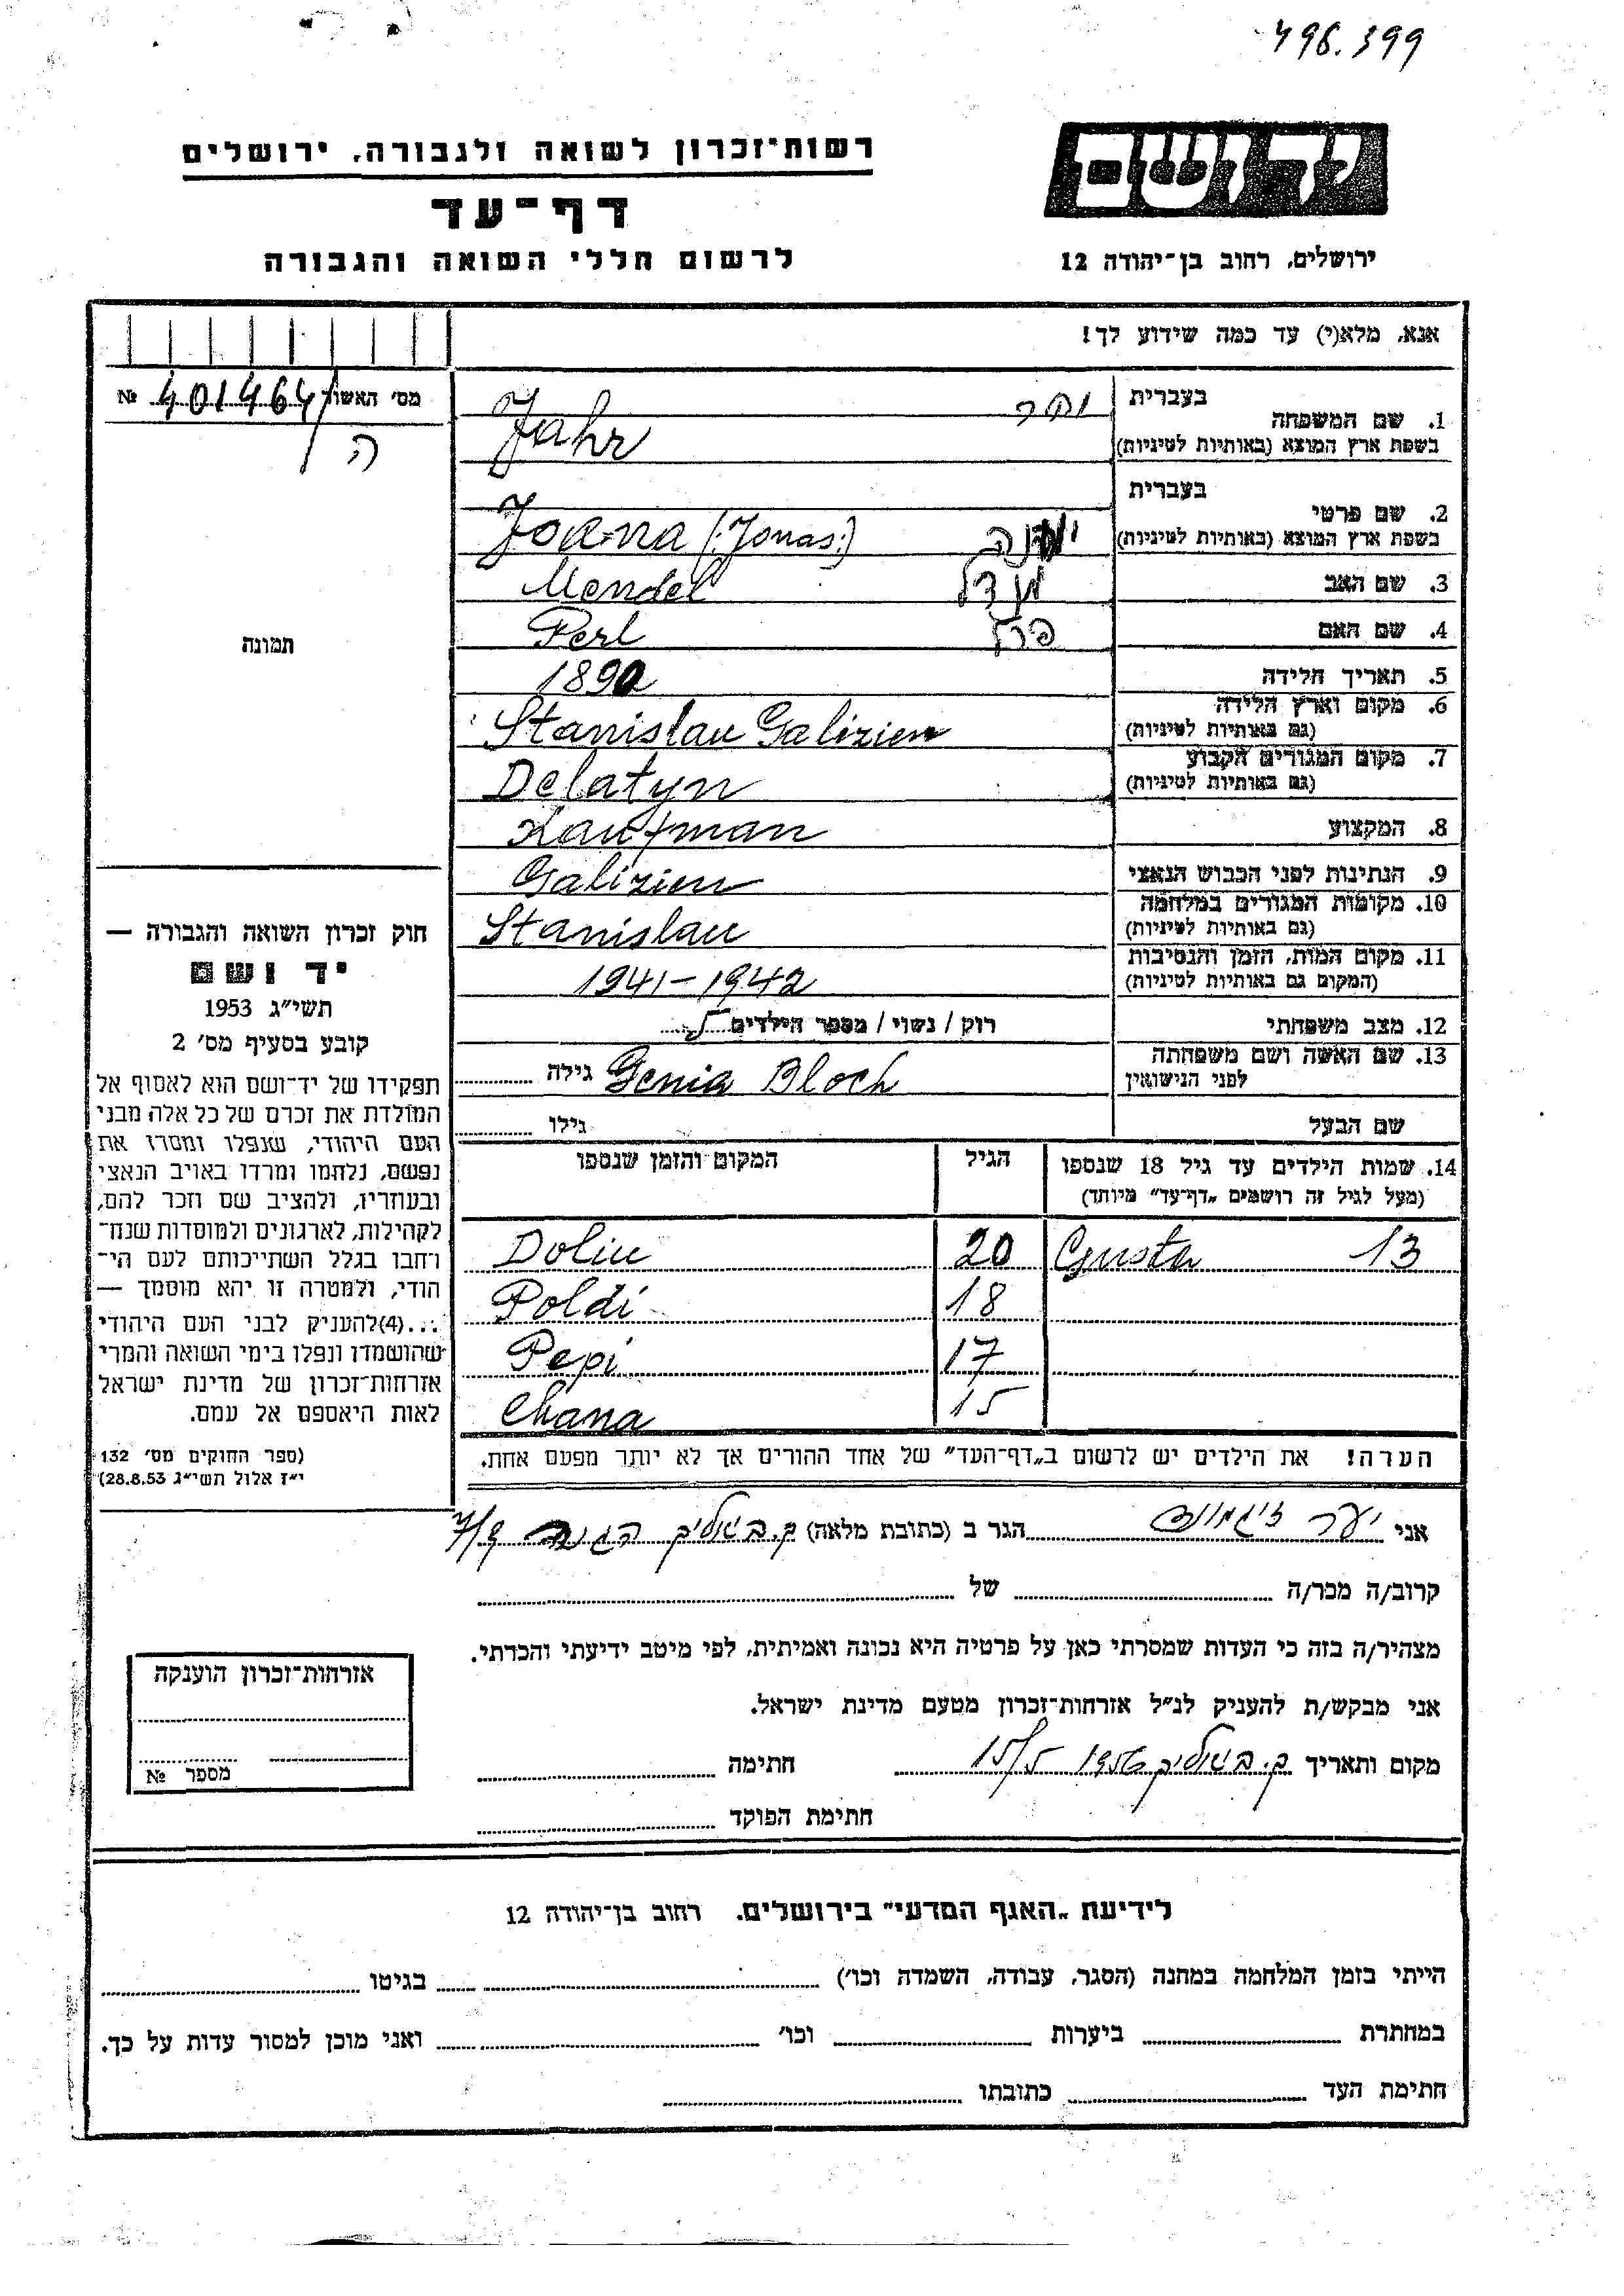 496.399
יד ושם
רשות־זכרון לשואה ולגבורה, ירושלים
דף־עד
לרשום חללי השואה והגבורה
ירושלים, רחוב בן־יהודה 12
אנא, מלא(י) עד כמה שידוע לך!
מס׳ האשור 401464 №
ה
תמונה
1. שם המשפחה
בעברית
בשפת ארץ המוצא (באותיות לטיניות) Jahr
2. שם פרטי
בעברית
בשפת ארץ המוצא (באותיות לטיניות) יונה Joana (:Jonas:)
3. שם האב מנדל Mendel
4. שם האם פרל Perl
5. תאריך הלידה 1890
6. מקום וארץ הלידה
(גם באותיות לטיניות) Stanislau Galizien
7. מקום המגורים הקבוע
(גם באותיות לטיניות) Delatyn
8. המקצוע Kaufman
9. הנתינות לפני הכבוש הנאצי Galizien
10. מקומות המגורים במלחמה
(גם באותיות לטיניות) Stanislau
11. מקום המות, הזמן והנסיבות
(המקום גם באותיות לטיניות) 1941-1942
12. מצב משפחתי רוק / נשוי / מספר הילדים 5
13. שם האשה ושם משפחתה
לפני הנישואין Genia Bloch גילה
שם הבעל גילו
14. שמות הילדים עד גיל 18 שנספו הגיל המקום והזמן שנספו
(מעל לגיל זה רושמים „דף־עד" מיוחד)
Doliu 20 Gusta 13
Poldi 18
Pepi 17
Chana 15
הערה! את הילדים יש לרשום ב„דף־העד" של אחד ההורים אך לא יותר מפעם אחת.
חוק זכרון השואה והגבורה —
יד ושם
תשי״ג 1953
קובע בסעיף מס׳ 2
תפקידו של יד־ושם הוא לאסוף אל
המולדת את זכרם של כל אלה מבני
העם היהודי, שנפלו ומסרו את
נפשם, נלחמו ומרדו באויב הנאצי
ובעוזריו, ולהציב שם וזכר להם,
לקהילות, לארגונים ולמוסדות שנח־
רחבו בגלל השתייכותם לעם הי־
הודי, ולמטרה זו יהא מוסמך —
...(4)להעניק לבני העם היהודי
שהושמדו ונפלו בימי השואה והמרי
אזרחות־זכרון של מדינת ישראל
לאות היאספם אל עמם.
(ספר החוקים מס׳ 132
י״ז אלול תשי״ג 28.8.53)
אני יער זיגמונד הגר ב (כתובת מלאה) ק. ביאליק
קרוב/ה מכר/ה של
מצהיר/ה בזה כי העדות שמסרתי כאן על פרטיה היא נכונה ואמיתית, לפי מיטב ידיעתי והכרתי.
אני מבקש/ת להעניק לנ״ל אזרחות־זכרון מטעם מדינת ישראל.
מקום ותאריך ק. ביאליק 1956 15/5 חתימה
חתימת הפוקד
אזרחות־זכרון הוענקה
מספר №
לידיעת „האגף המדעי" בירושלים. רחוב בן־יהודה 12
הייתי בזמן המלחמה במחנה (הסגר, עבודה, השמדה וכו׳) בגיטו
במחתרת ביערות וכו׳ ואני מוכן למסור עדות על כך.
חתימת העד כתובתו